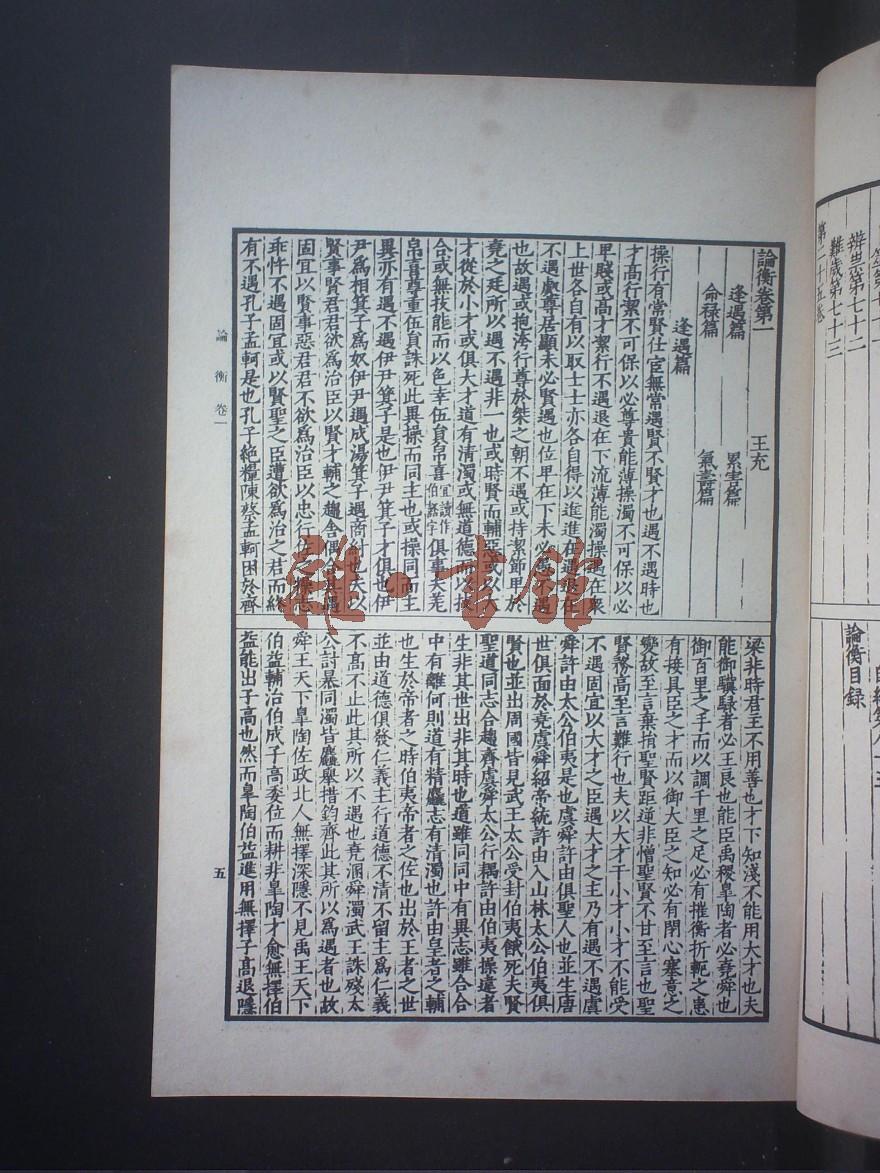 辨祟第七十二
難歲第七十三
第二十五卷
論衡目録
論衡卷第一 王充
逢遇篇 累害篇
命禄篇 氣壽篇
逢遇篇
操行有常賢仕宦無常遇賢不賢才也遇不遇時也
才髙行潔不可保以必尊貴能薄操濁不可保以必
卑賤或髙才潔行不遇退在下流薄能濁操遇在衆
上世各自有以取士士亦各自得以進進在遇退在
不遇處尊居顯未必賢遇也位卑在下未必愚不遇
也故遇或抱洿行尊於桀之朝不遇或持潔節卑於
堯之廷所以遇不遇非一也或時賢而輔惡或以大
才從於小才或俱大才道有清濁或無道德而以技
合或無技能而以色幸伍貟帛喜宜讀作伯嚭字俱事夫差
帛喜尊重伍貟誅死此異操而同主也或操同而主
異亦有遇不遇伊尹箕子是也伊尹箕子才俱也伊
尹爲相箕子爲奴伊尹遇成湯箕子遇商紂也夫以
賢事賢君君欲爲治臣以賢才輔之趨舍偶合其遇
固宜以賢事惡君君不欲爲治臣以忠行佐之操志
乖忤不遇固宜或以賢聖之臣遭欲爲治之君而終
有不遇孔子孟軻是也孔子絶糧陳蔡孟軻困於齊
梁非時君主不用善也才下知淺不能用大才也夫
能御驥騄者必王良也能臣禹稷臯陶者必堯舜也
御百里之手而以調千里之足必有摧衡折軛之患
有接具臣之才而以御大臣之知必有閉心塞意之
變故至言棄捐聖賢距逆非憎聖賢不甘至言也聖
賢務高至言難行也夫以大才干小才小才不能受
不遇固宜以大才之臣遇大才之主乃有遇不遇虞
舜許由太公伯夷是也虞舜許由俱聖人也並生唐
世俱面於堯虞舜紹帝統許由入山林太公伯夷俱
賢也並出周國皆見武王太公受封伯夷餓死夫賢
聖道同志合趨齊虞舜太公行耦許由伯夷操違者
生非其世出非其時也道雖同同中有異志雖合合
中有離何則道有精麤志有清濁也許由皇者之輔
也生於帝者之時伯夷帝者之佐也出於王者之世
並由道德俱發仁義主行道德不清不留主爲仁義
不髙不止此其所以不遇也堯溷舜濁武王誅殘太
公討暴同濁皆麤舉措鈞齊此其所以爲遇者也故
舜王天下臯陶佐政北人無擇深隱不見禹王天下
伯益輔治伯成子高委位而耕非臯陶才愈無擇伯
益能出子高也然而臯陶伯益進用無擇子髙退隱
論衡 卷一
五
雜·書館